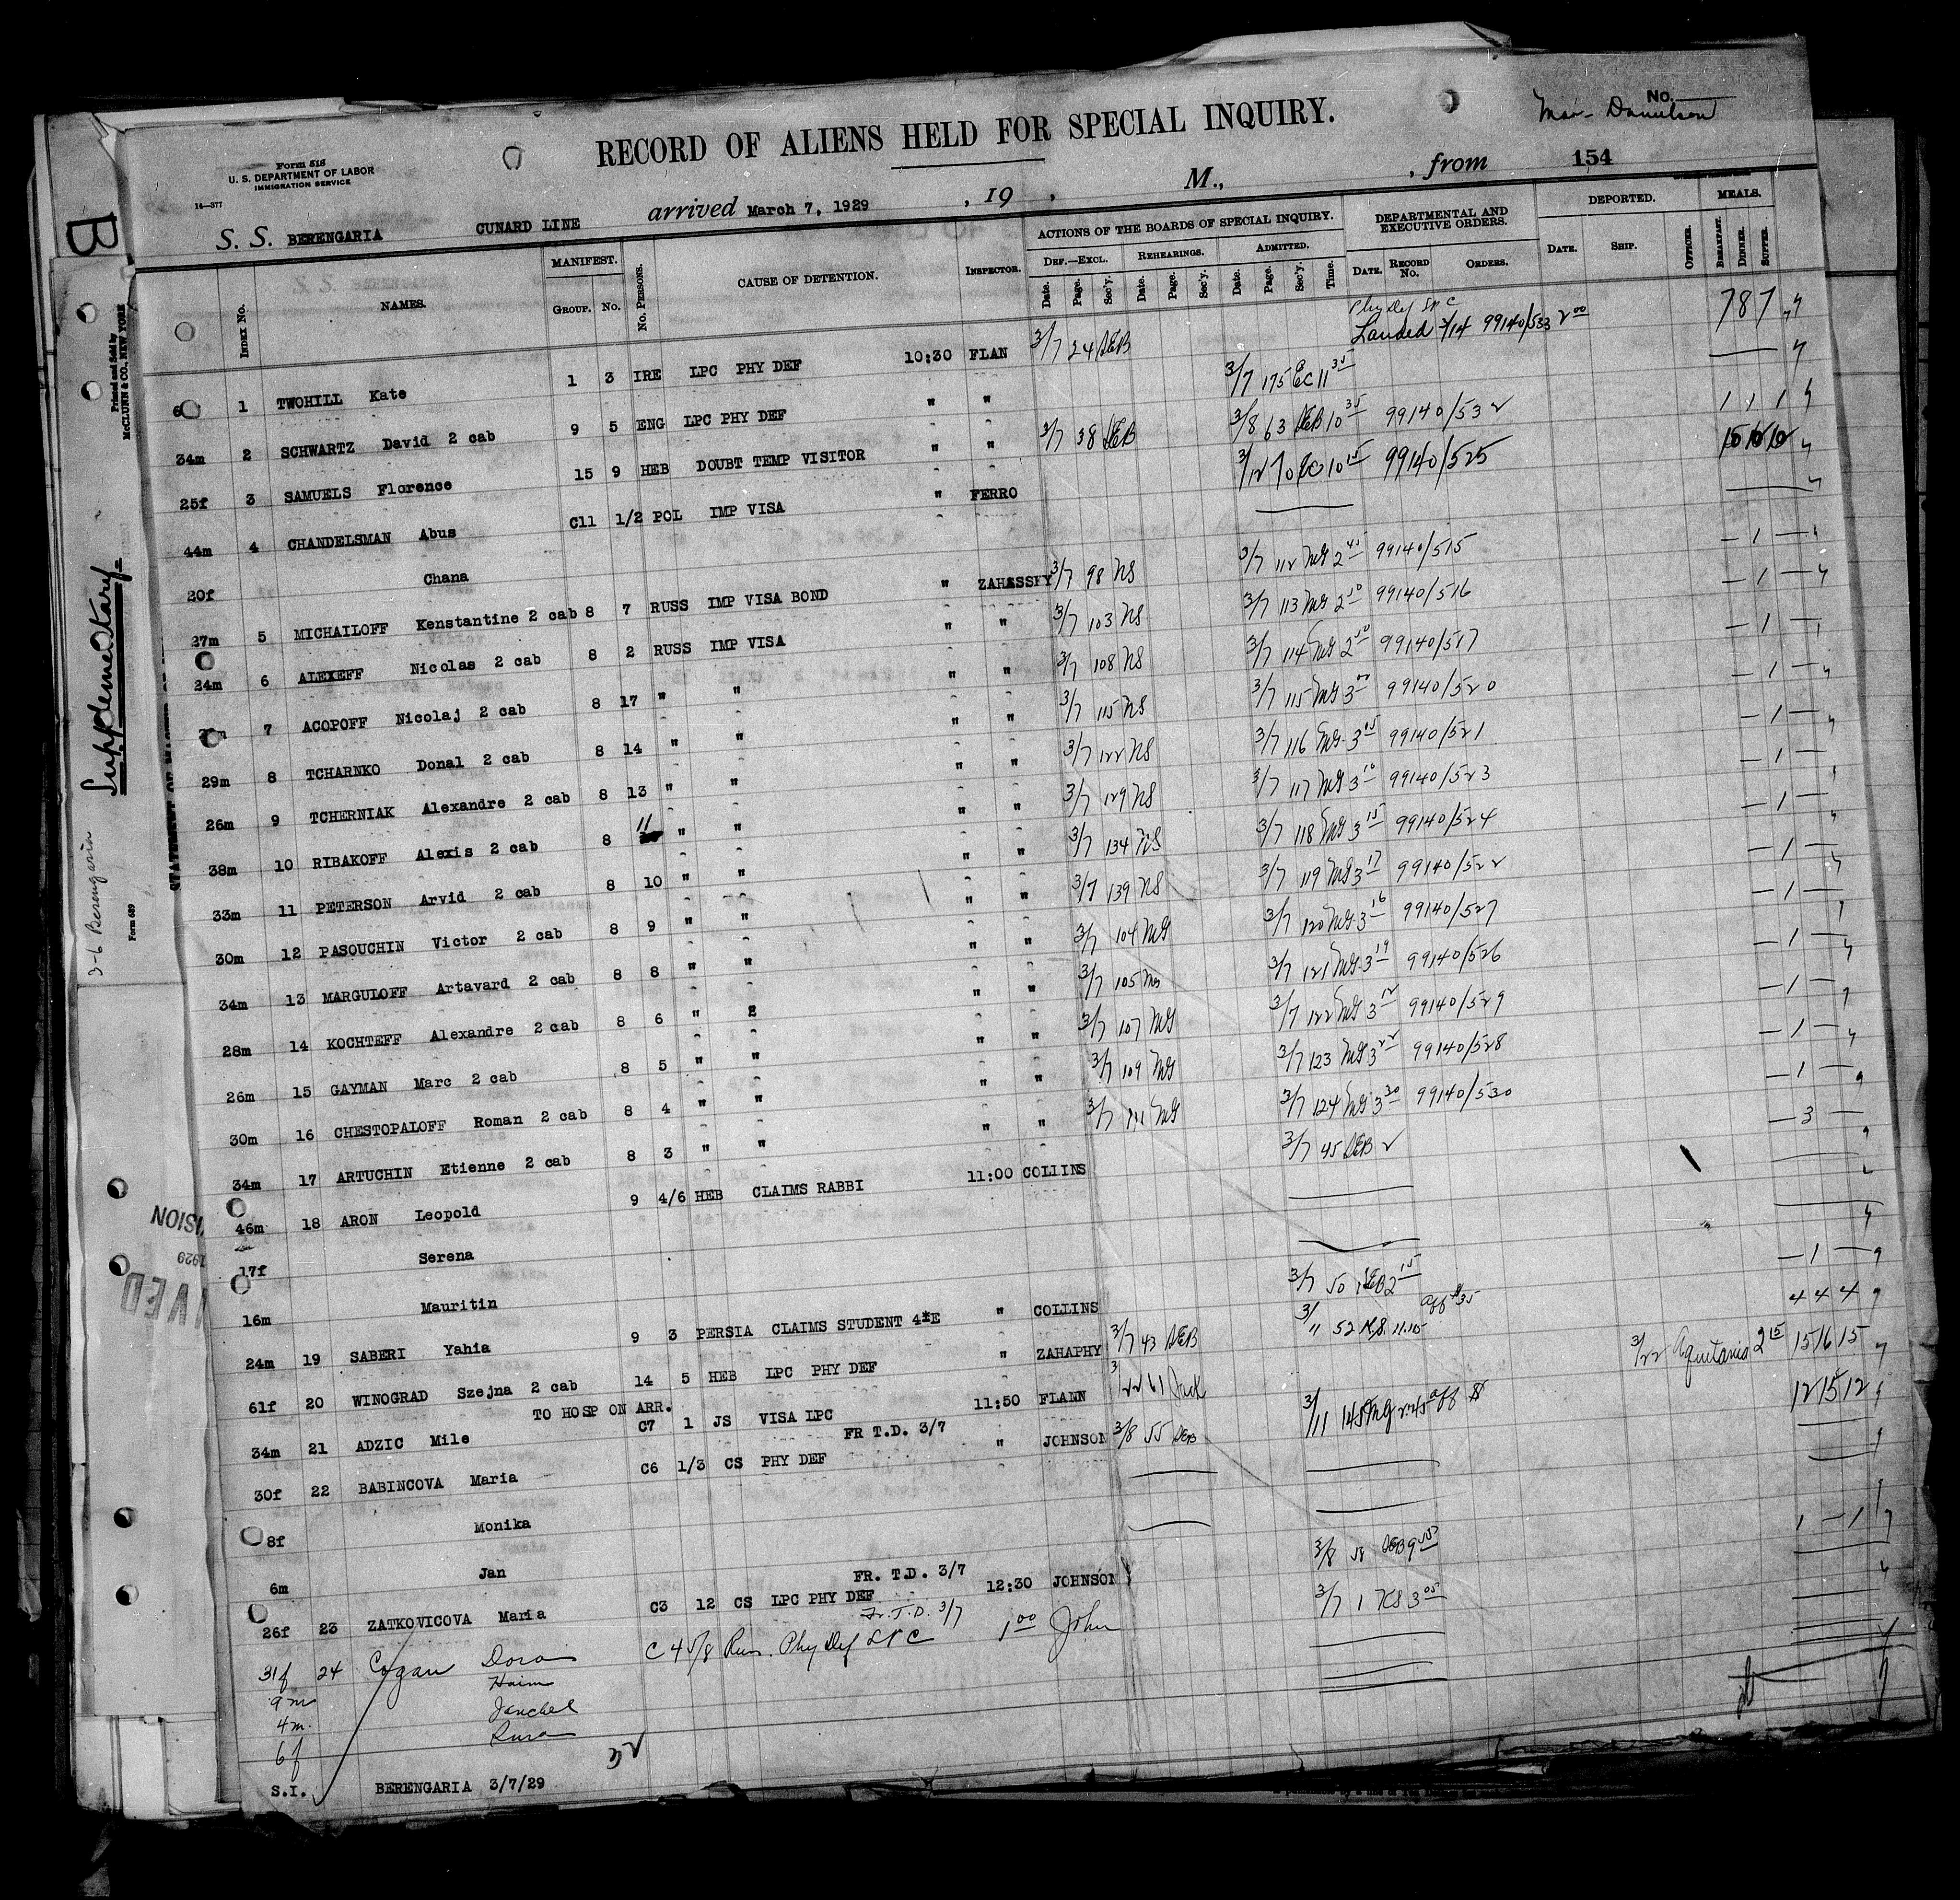 No.
Mar- Danielson
RECORD OF ALIENS HELD FOR SPECIAL INQUIRY.
Form 516
U. S. DEPARTMENT OF LABOR
IMMIGRATION SERVICE
14—377
S. S. BERENGARIA CUNARD LINE arrived March 7, 1929 , 19 , M., , from 154
INDEX No. NAMES. MANIFEST. GROUP. No. No. PERSONS. CAUSE OF DETENTION. INSPECTOR. ACTIONS OF THE BOARDS OF SPECIAL INQUIRY. DEF.—EXCL. REHEARINGS. ADMITTED. Date. Page. Sec'y. Date. Page. Sec'y. Date. Page. Sec'y. Time. DEPARTMENTAL AND EXECUTIVE ORDERS. DATE. RECORD No. ORDERS. DEPORTED. DATE. SHIP. OFFICER. MEALS. BREAKFAST. DINNER. SUPPER.
Phy Def LPC
6 1 TWOHILL Kate 1 3 IRE LPC PHY DEF 10:30 FLAN 3/7 24 DEB Landed 3/14 99140/533 2 00 7 8 7
34m 2 SCHWARTZ David 2 cab 9 5 ENG LPC PHY DEF " " 3/7 175 EC 11 35
25f 3 SAMUELS Florence 15 9 HEB DOUBT TEMP VISITOR " " 3/7 38 DEB 3/8 63 DEB 10 35 99140/532 1 1 1
44m 4 CHANDELSMAN Abus C11 1/2 POL IMP VISA " FERRO 3/12 70 EC 10 15 99140/525 10 10 10
20f Chana
27m 5 MICHAILOFF Kenstantine 2 cab 8 7 RUSS IMP VISA BOND " ZAHASSFY 3/7 98 NS 3/7 112 MG 2 45 99140/515 — 1 —
24m 6 ALEXEFF Nicolas 2 cab 8 2 RUSS IMP VISA " " 3/7 103 NS 3/7 113 MG 2 50 99140/516 — 1 —
7 ACOPOFF Nicolaj 2 cab 8 17 " " " " 3/7 108 NS 3/7 114 MG 2 50 99140/517 — 1 —
29m 8 TCHARNKO Donal 2 cab 8 14 " " " " 3/7 115 NS 3/7 115 MG 3 00 99140/520 — 1 —
26m 9 TCHERNIAK Alexandre 2 cab 8 13 " " " " 3/7 122 NS 3/7 116 MG 3 15 99140/521 — 1 —
38m 10 RIBAKOFF Alexis 2 cab 8 11 " " " " 3/7 129 NS 3/7 117 MG 3 10 99140/523 — 1 —
33m 11 PETERSON Arvid 2 cab 8 10 " " " " 3/7 134 NS 3/7 118 MG 3 15 99140/524 — 1 —
30m 12 PASOUCHIN Victor 2 cab 8 9 " " " " 3/7 139 NS 3/7 119 MG 3 17 99140/522 — 1 —
34m 13 MARGULOFF Artavard 2 cab 8 8 " " " " 3/7 104 MG 3/7 120 MG 3 16 99140/527 — 1 —
28m 14 KOCHTEFF Alexandre 2 cab 8 6 " " " " 3/7 105 MG 3/7 121 MG 3 19 99140/526 — 1 —
26m 15 GAYMAN Marc 2 cab 8 5 " " " " 3/7 107 MG 3/7 122 MG 3 12 99140/529 — 1 —
30m 16 CHESTOPALOFF Roman 2 cab 8 4 " " " " 3/7 109 MG 3/7 123 MG 3 22 99140/528 — 1 —
34m 17 ARTUCHIN Etienne 2 cab 8 3 " " " " 3/7 111 MG 3/7 124 MG 3 30 99140/530 — 1 —
46m 18 ARON Leopold 9 4/6 HEB CLAIMS RABBI 11:00 COLLINS 3/7 45 DEB 2 — 3 —
17f Serena
16m Mauritin
24m 19 SABERI Yahia 9 3 PERSIA CLAIMS STUDENT 4*E " COLLINS 3/7 50 DEB 2 15 — 1 —
61f 20 WINOGRAD Szejna 2 cab 14 5 HEB LPC PHY DEF " ZAHAPHY 3/7 43 DEB 3/11 52 11.15 aff $35 4 4 4
TO HOSP ON ARR.
34m 21 ADZIC Mile C7 1 JS VISA LPC 11:50 FLANN 3/12 61 Jack 3/22 Aquitania 2 15 15 16 15
FR T.D. 3/7
30f 22 BABINCOVA Maria C6 1/3 CS PHY DEF " JOHNSON 3/8 55 DEB 3/11 145 MG 2 45 aff $ 12 15 12
8f Monika
6m Jan
FR. T.D. 3/7
26f 23 ZATKOVICOVA Maria C3 12 CS LPC PHY DEF 12:30 JOHNSON 3/8 58 DEB 9 1 — 1
Fr. T. D. 3/7
31f 24 Cogan Dora C 4 5/8 Rus. Phy Def LPC 1 00 John 3/7 1 KS 3 05
9m Haim
4m. Janchel
6f Sura
S.I. BERENGARIA 3/7/29
B
Printed and Sold by
McCLUNN & CO., NEW YORK
Supplementary
3-6 Berengaria
Form 689